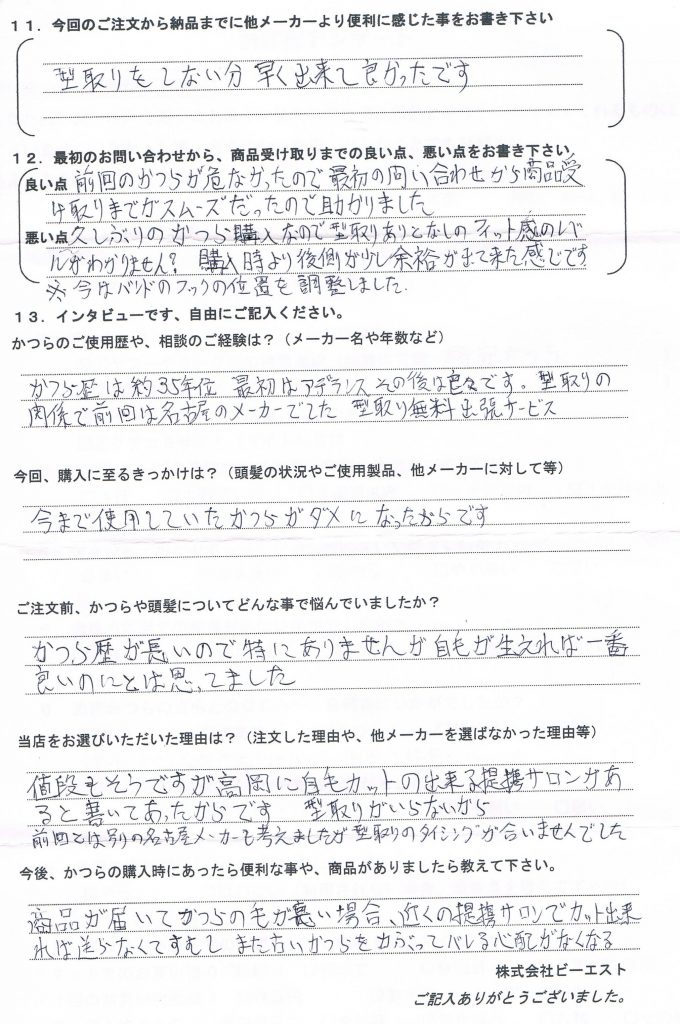 11．今回のご注文から納品までに他メーカーより便利に感じた事をお書き下さい
型取りをしない分 早く出来て良かったです
12．最初のお問い合わせから、商品受け取りまでの良い点、悪い点をお書き下さい。
良い点 前回のかつらが危なかったので最初の問い合わせから商品受
け取りまでがスムーズだったので助かりました
悪い点 久しぶりのかつら購入なので型取りありとなしのフィット感のレベ
ルがわかりません? 購入時より後側が少し余裕が出て来た感じです
※今はバンドのフックの位置を調整しました.
13．インタビューです、自由にご記入ください。
かつらのご使用歴や、相談のご経験は？（メーカー名や年数など）
かつら歴は約35年位 最初はアデランス その後は色々です。型取りの
関係で前回は名古屋のメーカーでした 型取り無料出張サービス
今回、購入に至るきっかけは？（頭髪の状況やご使用製品、他メーカーに対して等）
今まで使用していたかつらがダメになったからです
ご注文前、かつらや頭髪についてどんな事で悩んでいましたか？
かつら歴が長いので特にありませんが自毛が生えれば一番
良いのにとは思ってました
当店をお選びいただいた理由は？（注文した理由や、他メーカーを選ばなかった理由等）
値段もそうですが高岡に自毛カットの出来る提携サロンがあ
ると書いてあったからです 型取りがいらないから
前回とは別の名古屋メーカーも考えましたが型取りのタイミングが合いませんでした
今後、かつらの購入時にあったら便利な事や、商品がありましたら教えて下さい。
商品が届いてかつらの毛が長い場合、近くの提携サロンでカット出来
れば送らなくてすむし また古いかつらをかぶってバレる心配がなくなる
株式会社ビーエスト
ご記入ありがとうございました。